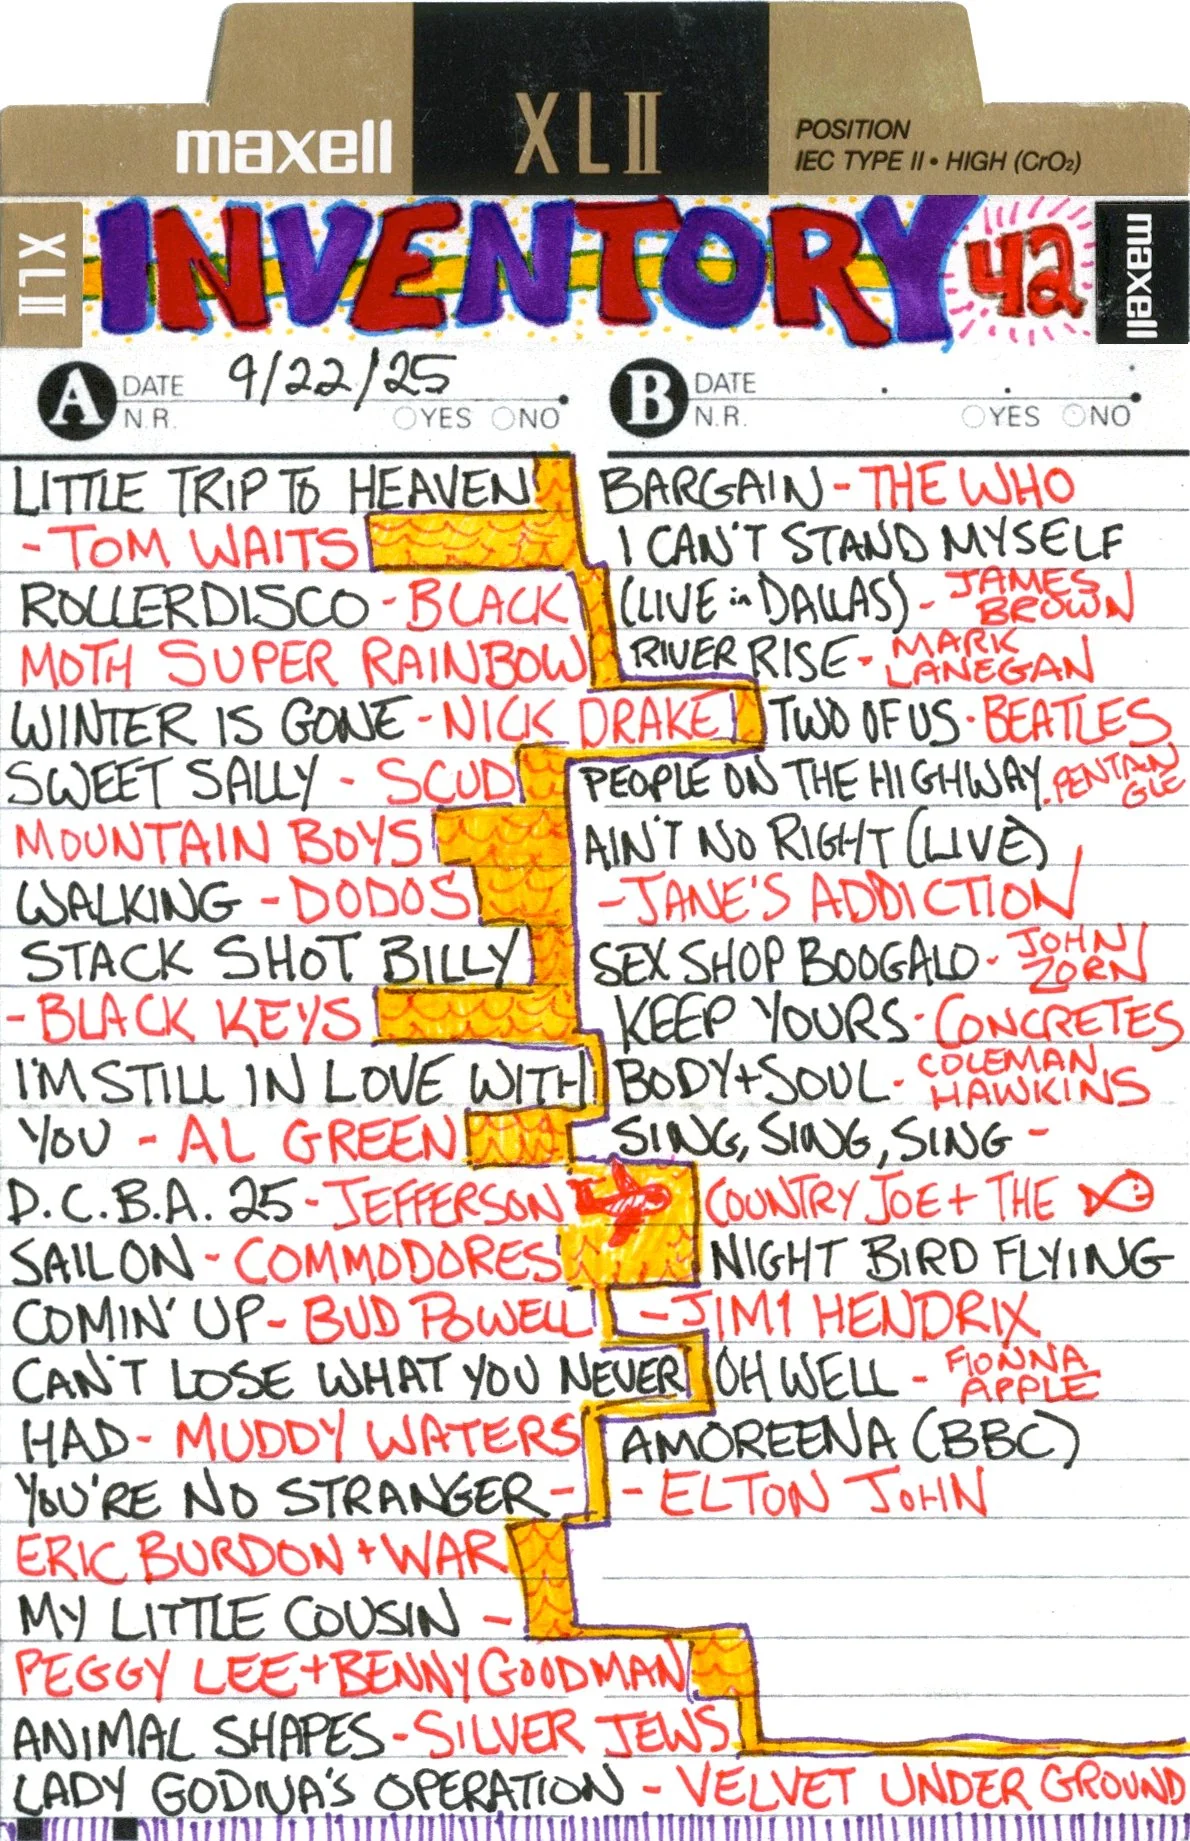 maxell
XLII
POSITION
IEC TYPE II • HIGH (CrO₂)
XLII
INVENTORY 42
maxell
A DATE 9/22/25
N.R. YES NO
B DATE
N.R. YES NO
LITTLE TRIP TO HEAVEN
- TOM WAITS
ROLLERDISCO - BLACK
MOTH SUPER RAINBOW
WINTER IS GONE - NICK DRAKE
SWEET SALLY - SCUD
MOUNTAIN BOYS
WALKING - DODOS
STACK SHOT BILLY
- BLACK KEYS
I'M STILL IN LOVE WITH
YOU - AL GREEN
D.C.B.A. 25 - JEFFERSON
SAIL ON - COMMODORES
COMIN' UP - BUD POWELL
CAN'T LOSE WHAT YOU NEVER
HAD - MUDDY WATERS
YOU'RE NO STRANGER -
ERIC BURDON + WAR
MY LITTLE COUSIN -
PEGGY LEE + BENNY GOODMAN
ANIMAL SHAPES - SILVER JEWS
LADY GODIVA'S OPERATION - VELVET UNDERGROUND
BARGAIN - THE WHO
I CAN'T STAND MYSELF
(LIVE in DALLAS) - JAMES BROWN
RIVER RISE - MARK LANEGAN
TWO OF US - BEATLES
PEOPLE ON THE HIGHWAY - PENTANGLE
AIN'T NO RIGHT (LIVE)
- JANE'S ADDICTION
SEX SHOP BOOGALO - JOHN ZORN
KEEP YOURS - CONCRETES
BODY + SOUL - COLEMAN HAWKINS
SING, SING, SING -
COUNTRY JOE + THE
NIGHT BIRD FLYING
- JIMI HENDRIX
OH WELL - FIONNA APPLE
AMOREENA (BBC)
- ELTON JOHN